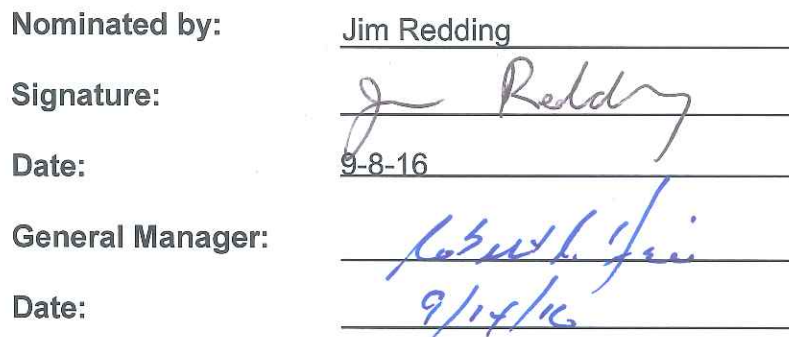 Nominated by: Jim Redding
Signature: Jim Redding
Date: 9-8-16
General Manager: Robert
Date: 9/14/16